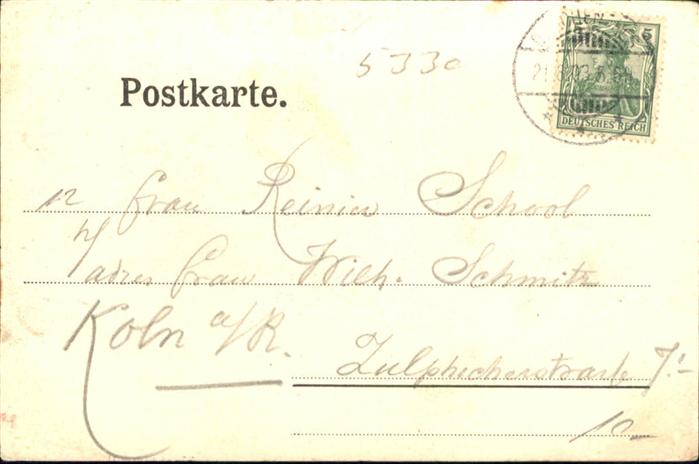 5330
Postkarte.
5 5
DEUTSCHES REICH
Frau Reinier School
p/
adres Frau Wilh. Schmitz
Köln a/R.
Zulphicherstrasse
10